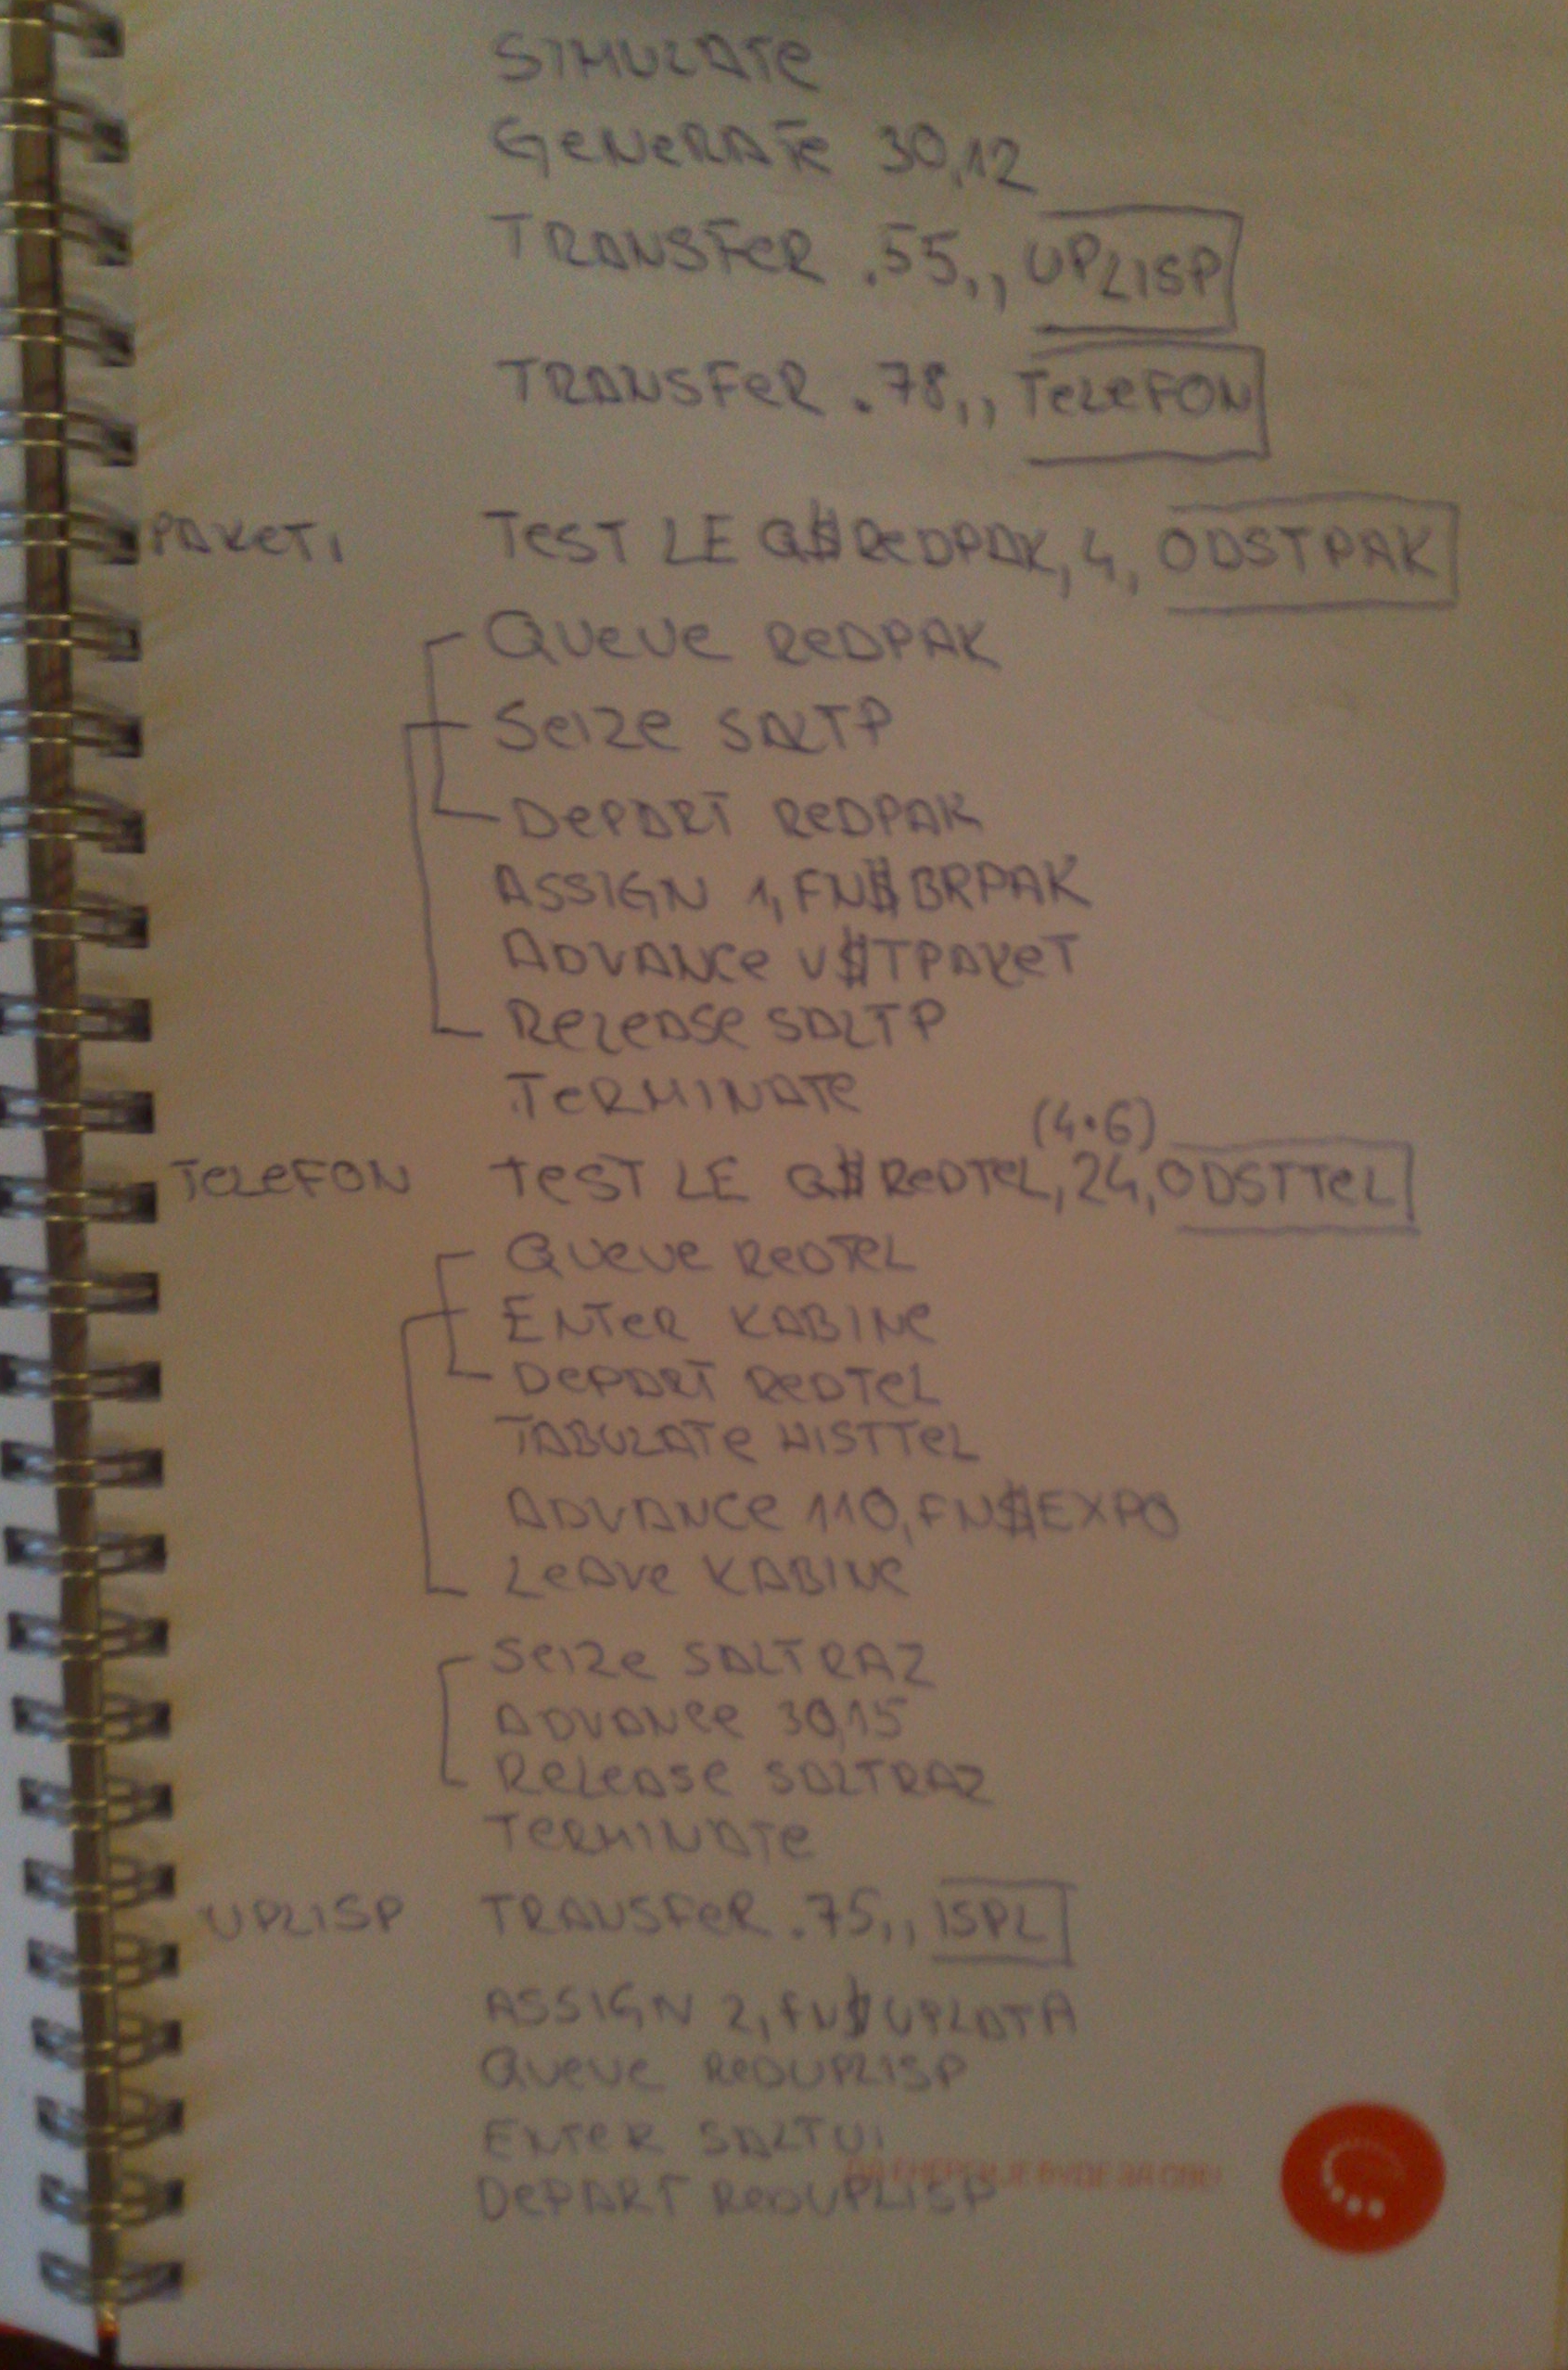 SIMULATE
GENERATE 30,12
TRANSFER .55,,UPLISP
TRANSFER .78,,TELEFON
PAKETI TEST LE Q$REDPAK,4,ODSTPAK
QUEUE REDPAK
SEIZE SALTP
DEPART REDPAK
ASSIGN 1,FN$BRPAK
ADVANCE V$TPAKET
RELEASE SALTP
TERMINATE
(4·6)
TELEFON TEST LE Q$REDTEL,24,ODSTTEL
QUEUE REDTEL
ENTER KABINE
DEPART REDTEL
TABULATE HISTTEL
ADVANCE 110,FN$EXPO
LEAVE KABINE
SEIZE SALTRAZ
ADVANCE 30,15
RELEASE SALTRAZ
TERMINATE
UPLISP TRANSFER .75,,ISPL
ASSIGN 2,FN$UPLATA
QUEUE REDUPLISP
ENTER SALTUI
DEPART REDUPLISP